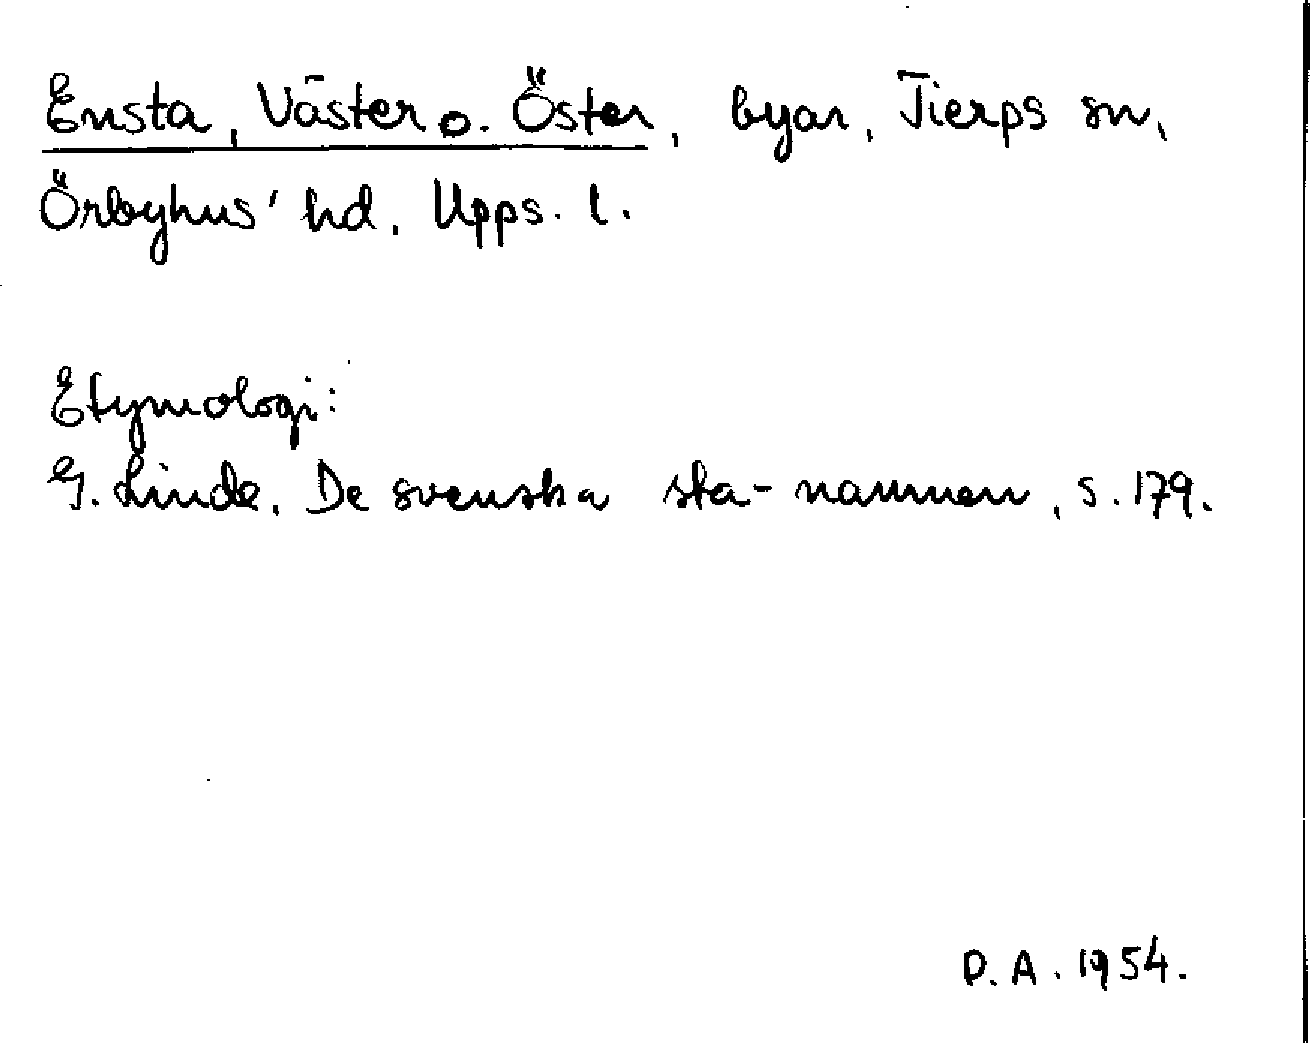 Ensta, Väster o. Öster, byar, Tierps sn,
Örbyhus' hd. Upps. l.
Etymologi:
G. Linde, De svenska sta-namnen, s. 179.
D. A. 1954.